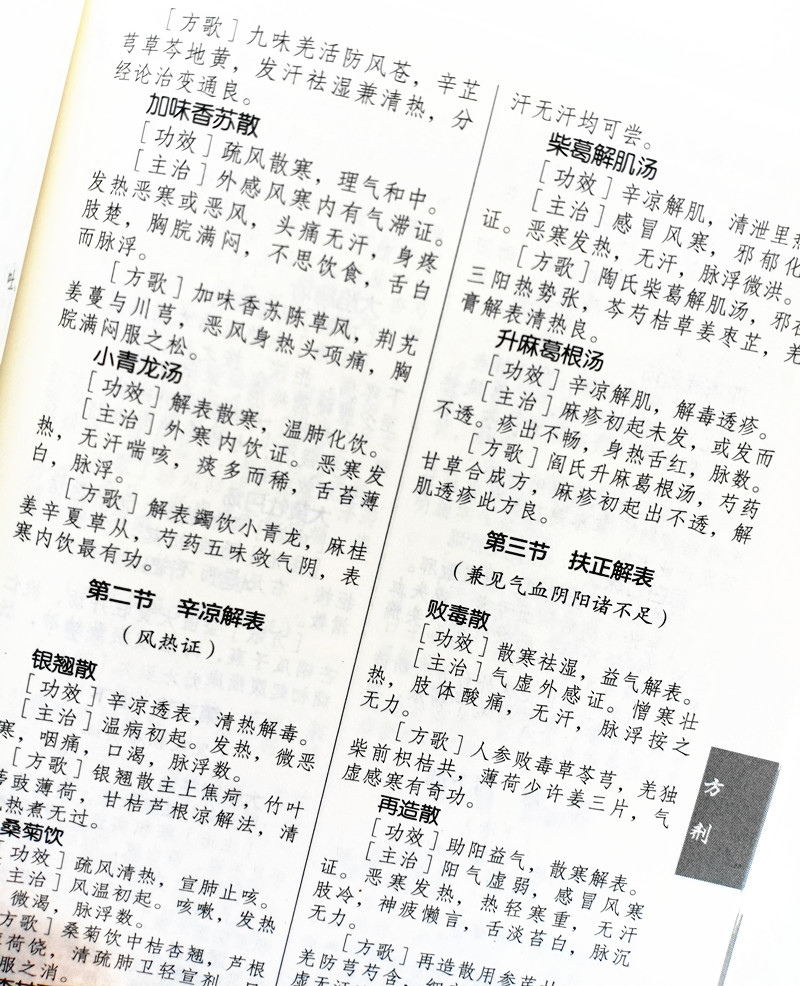 [方歌]九味羌活防风苍，辛芷
芎草芩地黄，发汗祛湿兼清热，分
经论治变通良。
加味香苏散
[功效]疏风散寒，理气和中。
[主治]外感风寒内有气滞证。
发热恶寒或恶风，头痛无汗，身疼
肢楚，胸脘满闷，不思饮食，舌白
而脉浮。
[方歌]加味香苏陈草风，荆艽
姜蔓与川芎，恶风身热头项痛，胸
脘满闷服之松。
小青龙汤
[功效]解表散寒，温肺化饮。
[主治]外寒内饮证。恶寒发
热，无汗喘咳，痰多而稀，舌苔薄
白，脉浮。
[方歌]解表蠲饮小青龙，麻桂
姜辛夏草从，芍药五味敛气阴，表
寒内饮最有功。
第二节 辛凉解表
（风热证）
银翘散
[功效]辛凉透表，清热解毒。
[主治]温病初起。发热，微恶
寒，咽痛，口渴，脉浮数。
[方歌]银翘散主上焦疴，竹叶
豉薄荷，甘桔芦根凉解法，清
热煮无过。
桑菊饮
功效]疏风清热，宣肺止咳。
主治]风温初起。咳嗽，发热
微渴，脉浮数。
方歌]桑菊饮中桔杏翘，芦根
荷饶，清疏肺卫轻宣剂
服之消。
汗无汗均可尝。
柴葛解肌汤
[功效]辛凉解肌，清泄里热
[主治]感冒风寒，邪郁化
证。恶寒发热，无汗，脉浮微洪。
[方歌]陶氏柴葛解肌汤，邪在
三阳热势张，芩芍桔草姜枣芷，羌
膏解表清热良。
升麻葛根汤
[功效]辛凉解肌，解毒透疹。
[主治]麻疹初起未发，或发而
不透。疹出不畅，身热舌红，脉数。
[方歌]阎氏升麻葛根汤，芍药
甘草合成方，麻疹初起出不透，解
肌透疹此方良。
第三节 扶正解表
（兼见气血阴阳诸不足）
败毒散
[功效]散寒祛湿，益气解表。
[主治]气虚外感证。憎寒壮
热，肢体酸痛，无汗，脉浮按之
无力。
[方歌]人参败毒草苓芎，羌独
柴前枳桔共，薄荷少许姜三片，气
虚感寒有奇功。
再造散
[功效]助阳益气，散寒解表。
[主治]阳气虚弱，感冒风寒
证。恶寒发热，热轻寒重，无汗
肢冷，神疲懒言，舌淡苔白，脉沉
无力。
[方歌]再造散用参芪
羌防芎芍含
虚无汗
方剂